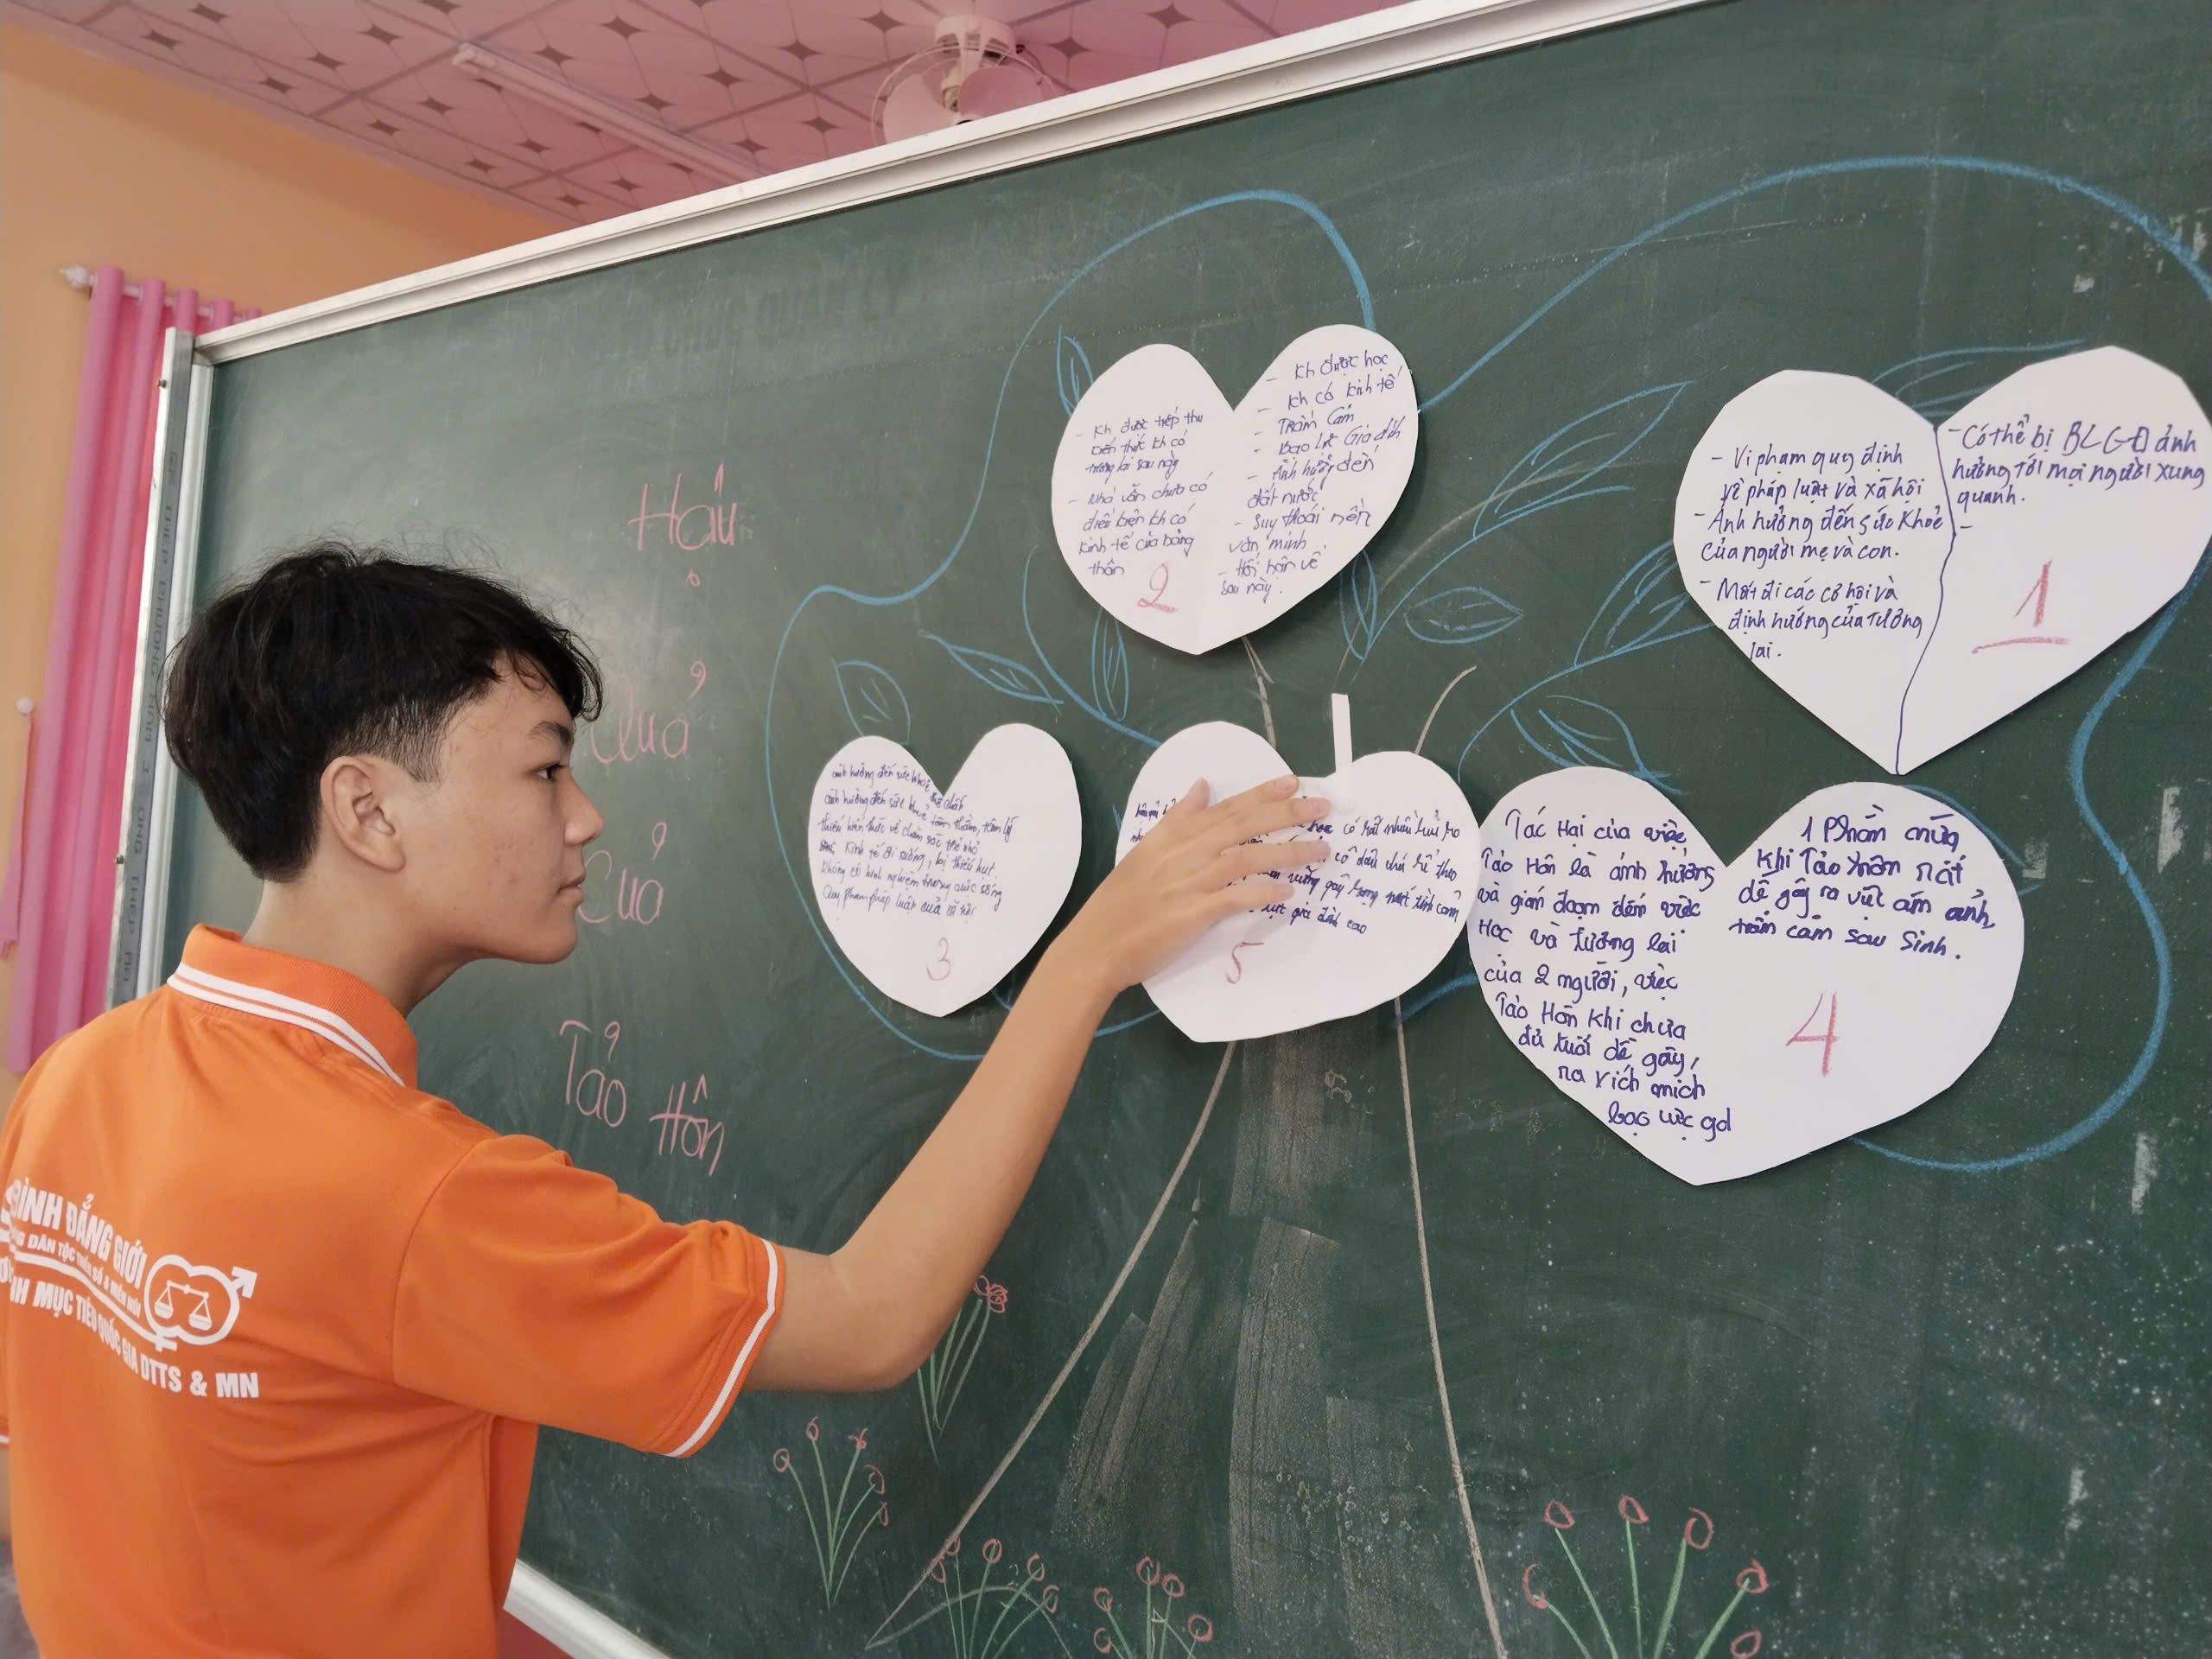 Hậu
Quả
Của
Tảo Hôn
- Kh được tiếp thu
kiến thức kh có
tương lai sau này
- Nhà vẫn chưa có
điều kiện kh có
kinh tế của bảng
thân
- Kh được học
- Kh có kinh tế
- Trầm Cảm
- Bạo lực Gia đình
- Ảnh hưởng đến
đất nước
- Suy thoái nền
văn minh
- Hối hận về
sau này.
2
- Vi phạm quy định
về pháp luật và xã hội
- Ảnh hưởng đến sức khoẻ
của người mẹ và con.
- Mất đi các cơ hội và
định hướng của tương
lai.
- Có thể bị BLGĐ ảnh
hưởng tới mọi người xung
quanh.
-
1
ảnh hưởng đến sức khoẻ thể chất
ảnh hưởng đến sức khoẻ tâm thần, tâm lý
thiếu kiến thức về chăm sóc trẻ nhỏ
kinh tế đi xuống, bị thiếu hụt
không có kinh nghiệm trong cuộc sống
Quy phạm pháp luật của xã hội
3
có rất nhiều hủ tục
cô dâu chú rể theo
vững gây lượng mất tình cảm
lực gia đình cao
5
Tác Hại của việc
Tảo Hôn là ảnh hưởng
và gián đoạn đến việc
Học và tương lai
của 2 người, việc
Tảo Hôn khi chưa
đủ tuổi dễ gây
ra xích mích
bạo lực gđ
1 Phần nữa
khi Tảo Hôn rất
dễ gây ra vụt ám ảnh,
trầm cảm sau Sinh.
4
BÌNH ĐẲNG GIỚI
DÂN TỘC THIỂU SỐ & MIỀN NÚI
MỤC TIÊU QUỐC GIA DTTS & MN